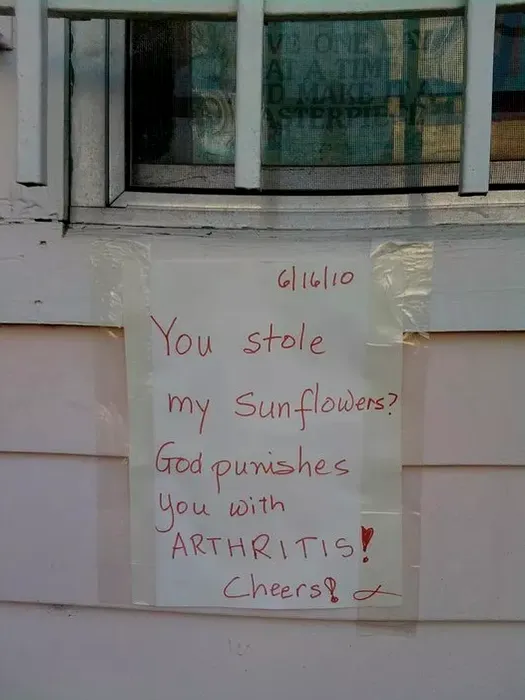 VE ONE DAY
AT A TIME
D MAKE IT A
ASTERPIE
6/16/10
You stole
my Sunflowers?
God punishes
you with
ARTHRITIS!
Cheers!